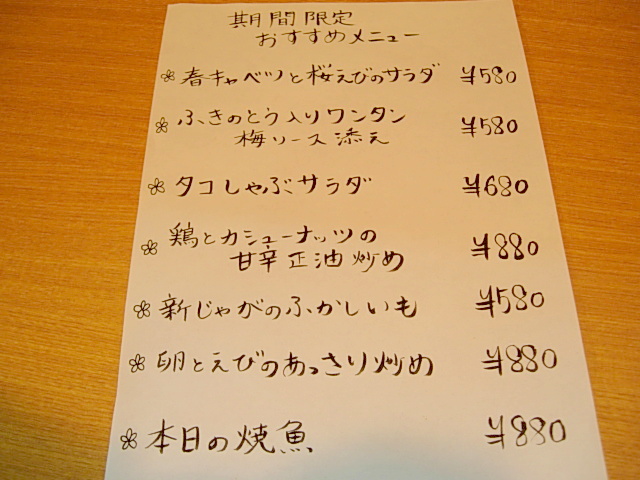 期間限定
おすすめメニュー
春キャベツと桜えびのサラダ ¥580
ふきのとう入りワンタン
梅ソース添え ¥580
タコしゃぶサラダ ¥680
鶏とカシューナッツの
甘辛正油炒め ¥880
新じゃがのふかしいも ¥580
卵とえびのあっさり炒め ¥880
本日の焼魚 ¥880